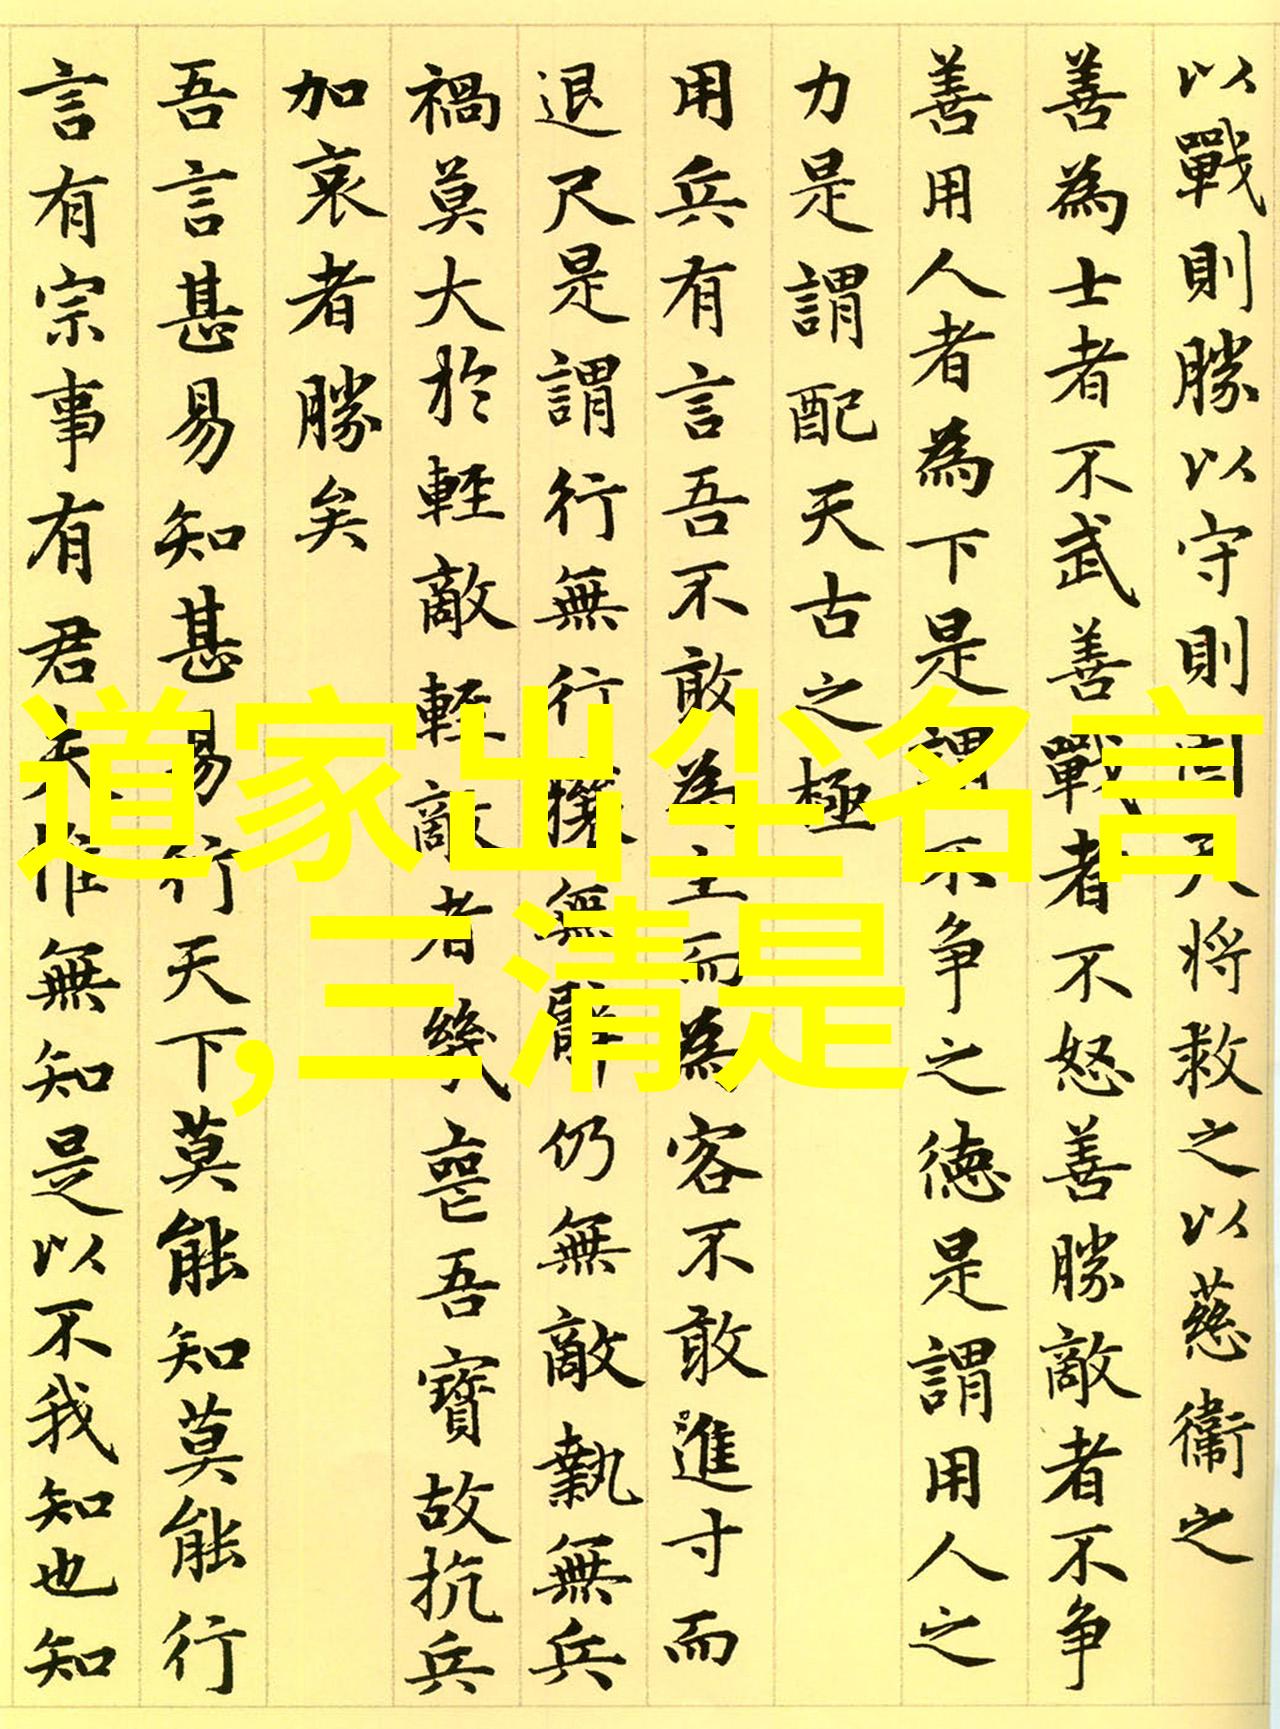 以戰則勝以守則固天將救之以慈衞之
善為士者不武善戰者不怒善勝敵者不争
善用人者為下是謂不争之德是謂用人之
力是謂配天古之極
用兵有言吾不敢為主而為客不敢進寸而
退尺是謂行無行攘無臂仍無敵執無兵
禍莫大於輕敵輕敵者幾喪吾寶故抗兵
加哀者勝矣
吾言甚易知甚易行天下莫能知莫能行
言有宗事有君夫惟無知是以不我知也知
道家出尘名言
,三清是